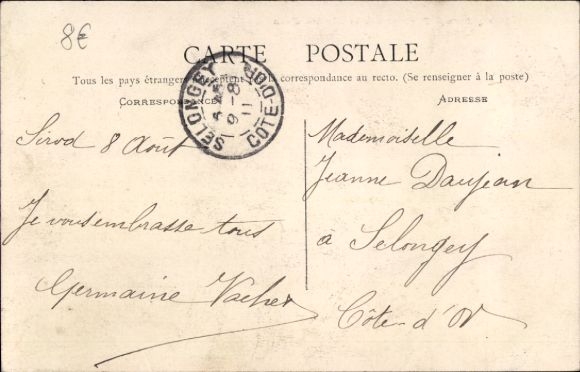 8€
CARTE POSTALE
Tous les pays étrangers n'acceptent pas la correspondance au recto. (Se renseigner à la poste)
CORRESPONDANCE
ADRESSE
SELONGEY
9-8
11
COTE-D'OR
Sirod 8 Août
Je vous embrasse tous
Germaine Vacher
Mademoiselle
Jeanne Daujean
à Selongey
Côte-d'Or